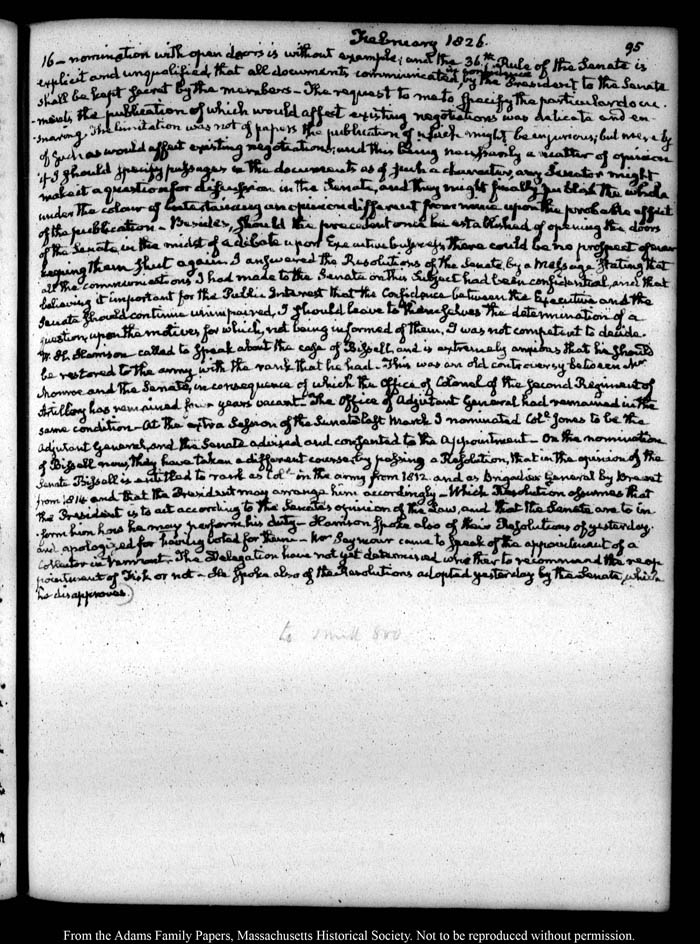 February 1826.
95
16 – nomination with open doors is without example; and the 36th Rule of the Senate is
explicit and unqualified, that all documents communicated in confidence by the President to the Senate
shall be kept secret by the members – The request to me to specify the particular docu-
ments the publication of which would affect existing negotiations was delicate and en-
snaring. The limitation was not of papers the publication of which might be injurious; but merely
of such as would affect existing negotiations; and this being necessarily a matter of opinion
if I should specify passages in the documents as of such a character, any Senator might
make it a question for discussion in the Senate, and they might finally publish the whole
under the colour of entertaining an opinion different from mine upon the probable effect
of the publication – Besides, should the precedent once be established of opening the doors
of the Senate, in the midst of a debate upon Executive business, there could be no prospect of ever
keeping them shut again. I answered the Resolutions of the Senate, by a Message stating that
all the communications I had made to the Senate on this subject had been confidential, and that
believing it important for the Public Interest that the Confidence between the Executive and the
Senate should continue unimpaired, I should leave to themselves the determination of a
question, upon the motives for which, not being informed of them, I was not competent to decide.
W. H. Harrison called to speak about the case of Bissell, and is extremely anxious that he should
be restored to the army with the rank that he had – This was an old controversy between Mr
Monroe and the Senate, in consequence of which the office of Colonel of the second Regiment of
Artillery has remained years vacant – The office of Adjutant General had remained in the
same condition – At the extra Session of the Senate last March I nominated Coll. Jones to be the
Adjutant General, and the Senate advised and consented to the Appointment – On the nomination
of Bissell now, they have taken a different course, by passing a Resolution, that in the opinion of the
Senate Bissell is entitled to rank as Coll. in the army from 1812 and as Brigadier General by Brevet
from 1814 and that the President may arrange him accordingly – Which Resolution assumes that
the President is to act according to the Senate's opinion of the Law, and that the Senate are to in-
form him how he may perform his duty – Harrison spoke also of their Resolutions of yesterday.
and apologized for having voted for them – Mr Seymour came to speak of the appointment of a
Collector in Vermont – The Delegation have not yet determined whether to recommend the reap-
pointment of Fisk or not – He spoke also of the Resolutions adopted yesterday by the Senate, which
he disapproves.
From the Adams Family Papers, Massachusetts Historical Society. Not to be reproduced without permission.